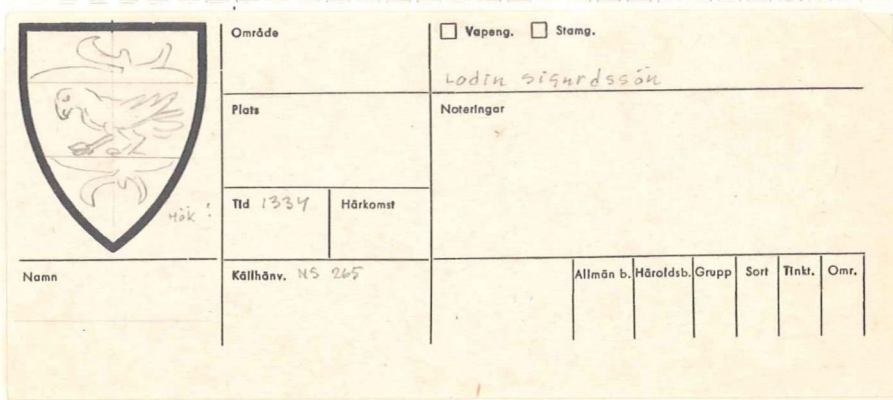 Område
Vapeng. Stamg.
Lodin Sigurdssön
Plats
Noteringar
Hök !
Tid 1334
Härkomst
Namn
Källhänv. NS 265
Allmän b. Häroldsb. Grupp Sort Tinkt. Omr.